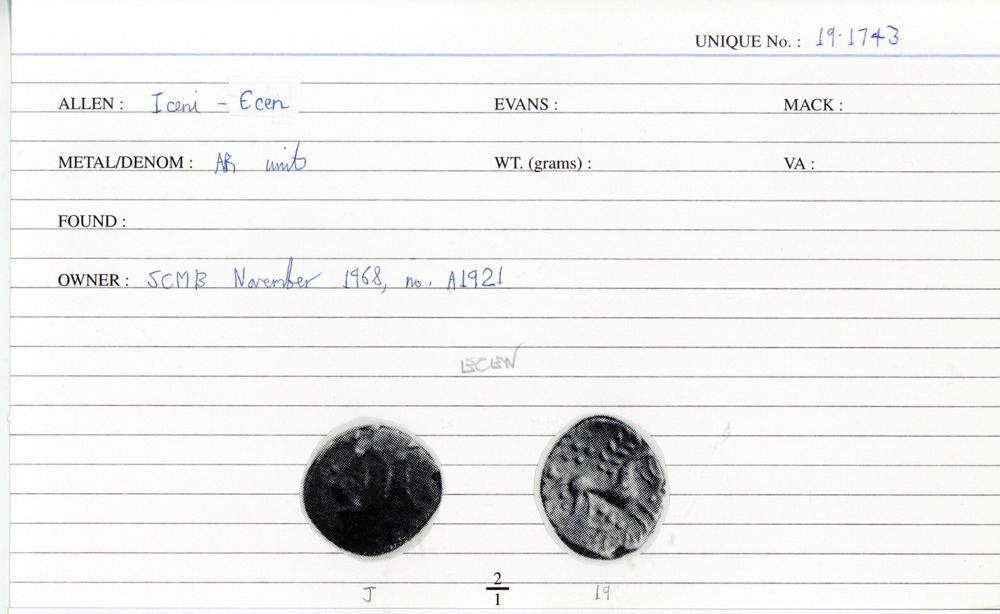 UNIQUE No. : 19.1743
ALLEN : Iceni - Ecen EVANS : MACK :
METAL/DENOM : AR unit WT. (grams) : VA :
FOUND :
OWNER : SCMB November 1968, no. A1921
ECEN
2
J 19
1